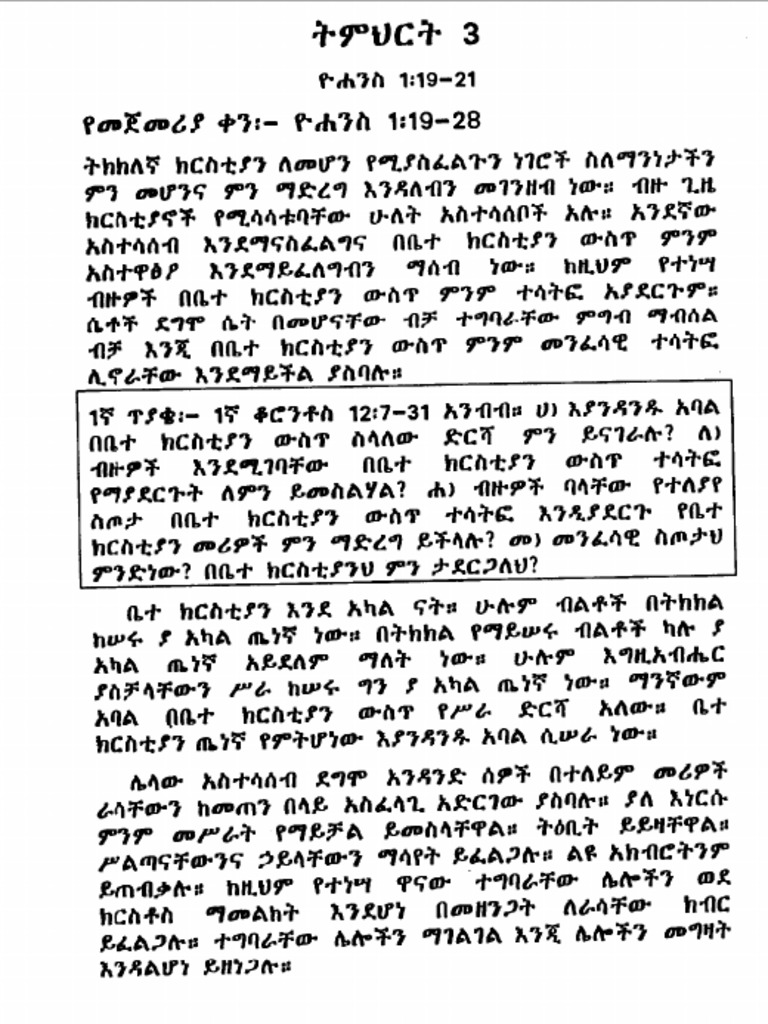 ትምህርት 3
ዮሐንስ 1፡19–21
የመጀመሪያ ቀን፡– ዮሐንስ 1፡19–28
ትክክለኛ ክርስቲያን ለመሆን የሚያስፈልጉን ነገሮች ስለማንነታችን
ምን መሆንና ምን ማድረግ እንዳለብን መገንዘብ ነው። ብዙ ጊዜ
ክርስቲያኖች የሚሳሳቱባቸው ሁለት አስተሳሰቦች አሉ። አንደኛው
አስተሳሰብ እንደማናስፈልግና በቤተ ክርስቲያን ውስጥ ምንም
አስተዋፅዖ እንደማይፈለግብን ማሰብ ነው። ከዚህም የተነሣ
ብዙዎች በቤተ ክርስቲያን ውስጥ ምንም ተሳትፎ አያደርጉም።
ሴቶች ደግሞ ሴት በመሆናቸው ብቻ ተግባራቸው ምግብ ማብሰል
ብቻ እንጂ በቤተ ክርስቲያን ውስጥ ምንም መንፈሳዊ ተሳትፎ
ሊኖራቸው እንደማይችል ያስባሉ።
1ኛ ጥያቄ፡– 1ኛ ቆሮንቶስ 12፡7–31 አንብብ። ሀ) እያንዳንዱ አባል
በቤተ ክርስቲያን ውስጥ ስላለው ድርሻ ምን ይናገራሉ? ለ)
ብዙዎች እንደሚገባቸው በቤተ ክርስቲያን ውስጥ ተሳትፎ
የማያደርጉት ለምን ይመስልሃል? ሐ) ብዙዎች ባላቸው የተለያየ
ስጦታ በቤተ ክርስቲያን ውስጥ ተሳትፎ እንዲያደርጉ የቤተ
ክርስቲያን መሪዎች ምን ማድረግ ይችላሉ? መ) መንፈሳዊ ስጦታህ
ምንድነው? በቤተ ክርስቲያንህ ምን ታደርጋለህ?
ቤተ ክርስቲያን እንደ አካል ናት። ሁሉም ብልቶች በትክክል
ከሠሩ ያ አካል ጤነኛ ነው። በትክክል የማይሠሩ ብልቶች ካሉ ያ
አካል ጤነኛ አይደለም ማለት ነው። ሁሉም እግዚአብሔር
ያስቻላቸውን ሥራ ከሠሩ ግን ያ አካል ጤነኛ ነው። ማንኛውም
አባል በቤተ ክርስቲያን ውስጥ የሥራ ድርሻ አለው። ቤተ
ክርስቲያን ጤነኛ የምትሆነው እያንዳንዱ አባል ሲሠራ ነው።
ሌላው አስተሳሰብ ደግሞ አንዳንድ ሰዎች በተለይም መሪዎች
ራሳቸውን ከመጠን በላይ አስፈላጊ አድርገው ያስባሉ። ያለ እነርሱ
ምንም መሥራት የማይቻል ይመስላቸዋል። ትዕቢት ይይዛቸዋል።
ሥልጣናቸውንና ኃይላቸውን ማሳየት ይፈልጋሉ። ልዩ አክብሮትንም
ይጠብቃሉ። ከዚህም የተነሣ ዋናው ተግባራቸው ሌሎችን ወደ
ክርስቶስ ማመልከት እንደሆነ በመዘንጋት ለራሳቸው ክብር
ይፈልጋሉ። ተግባራቸው ሌሎችን ማገልገል እንጂ ሌሎችን መግዛት
እንዳልሆነ ይዘነጋሉ።